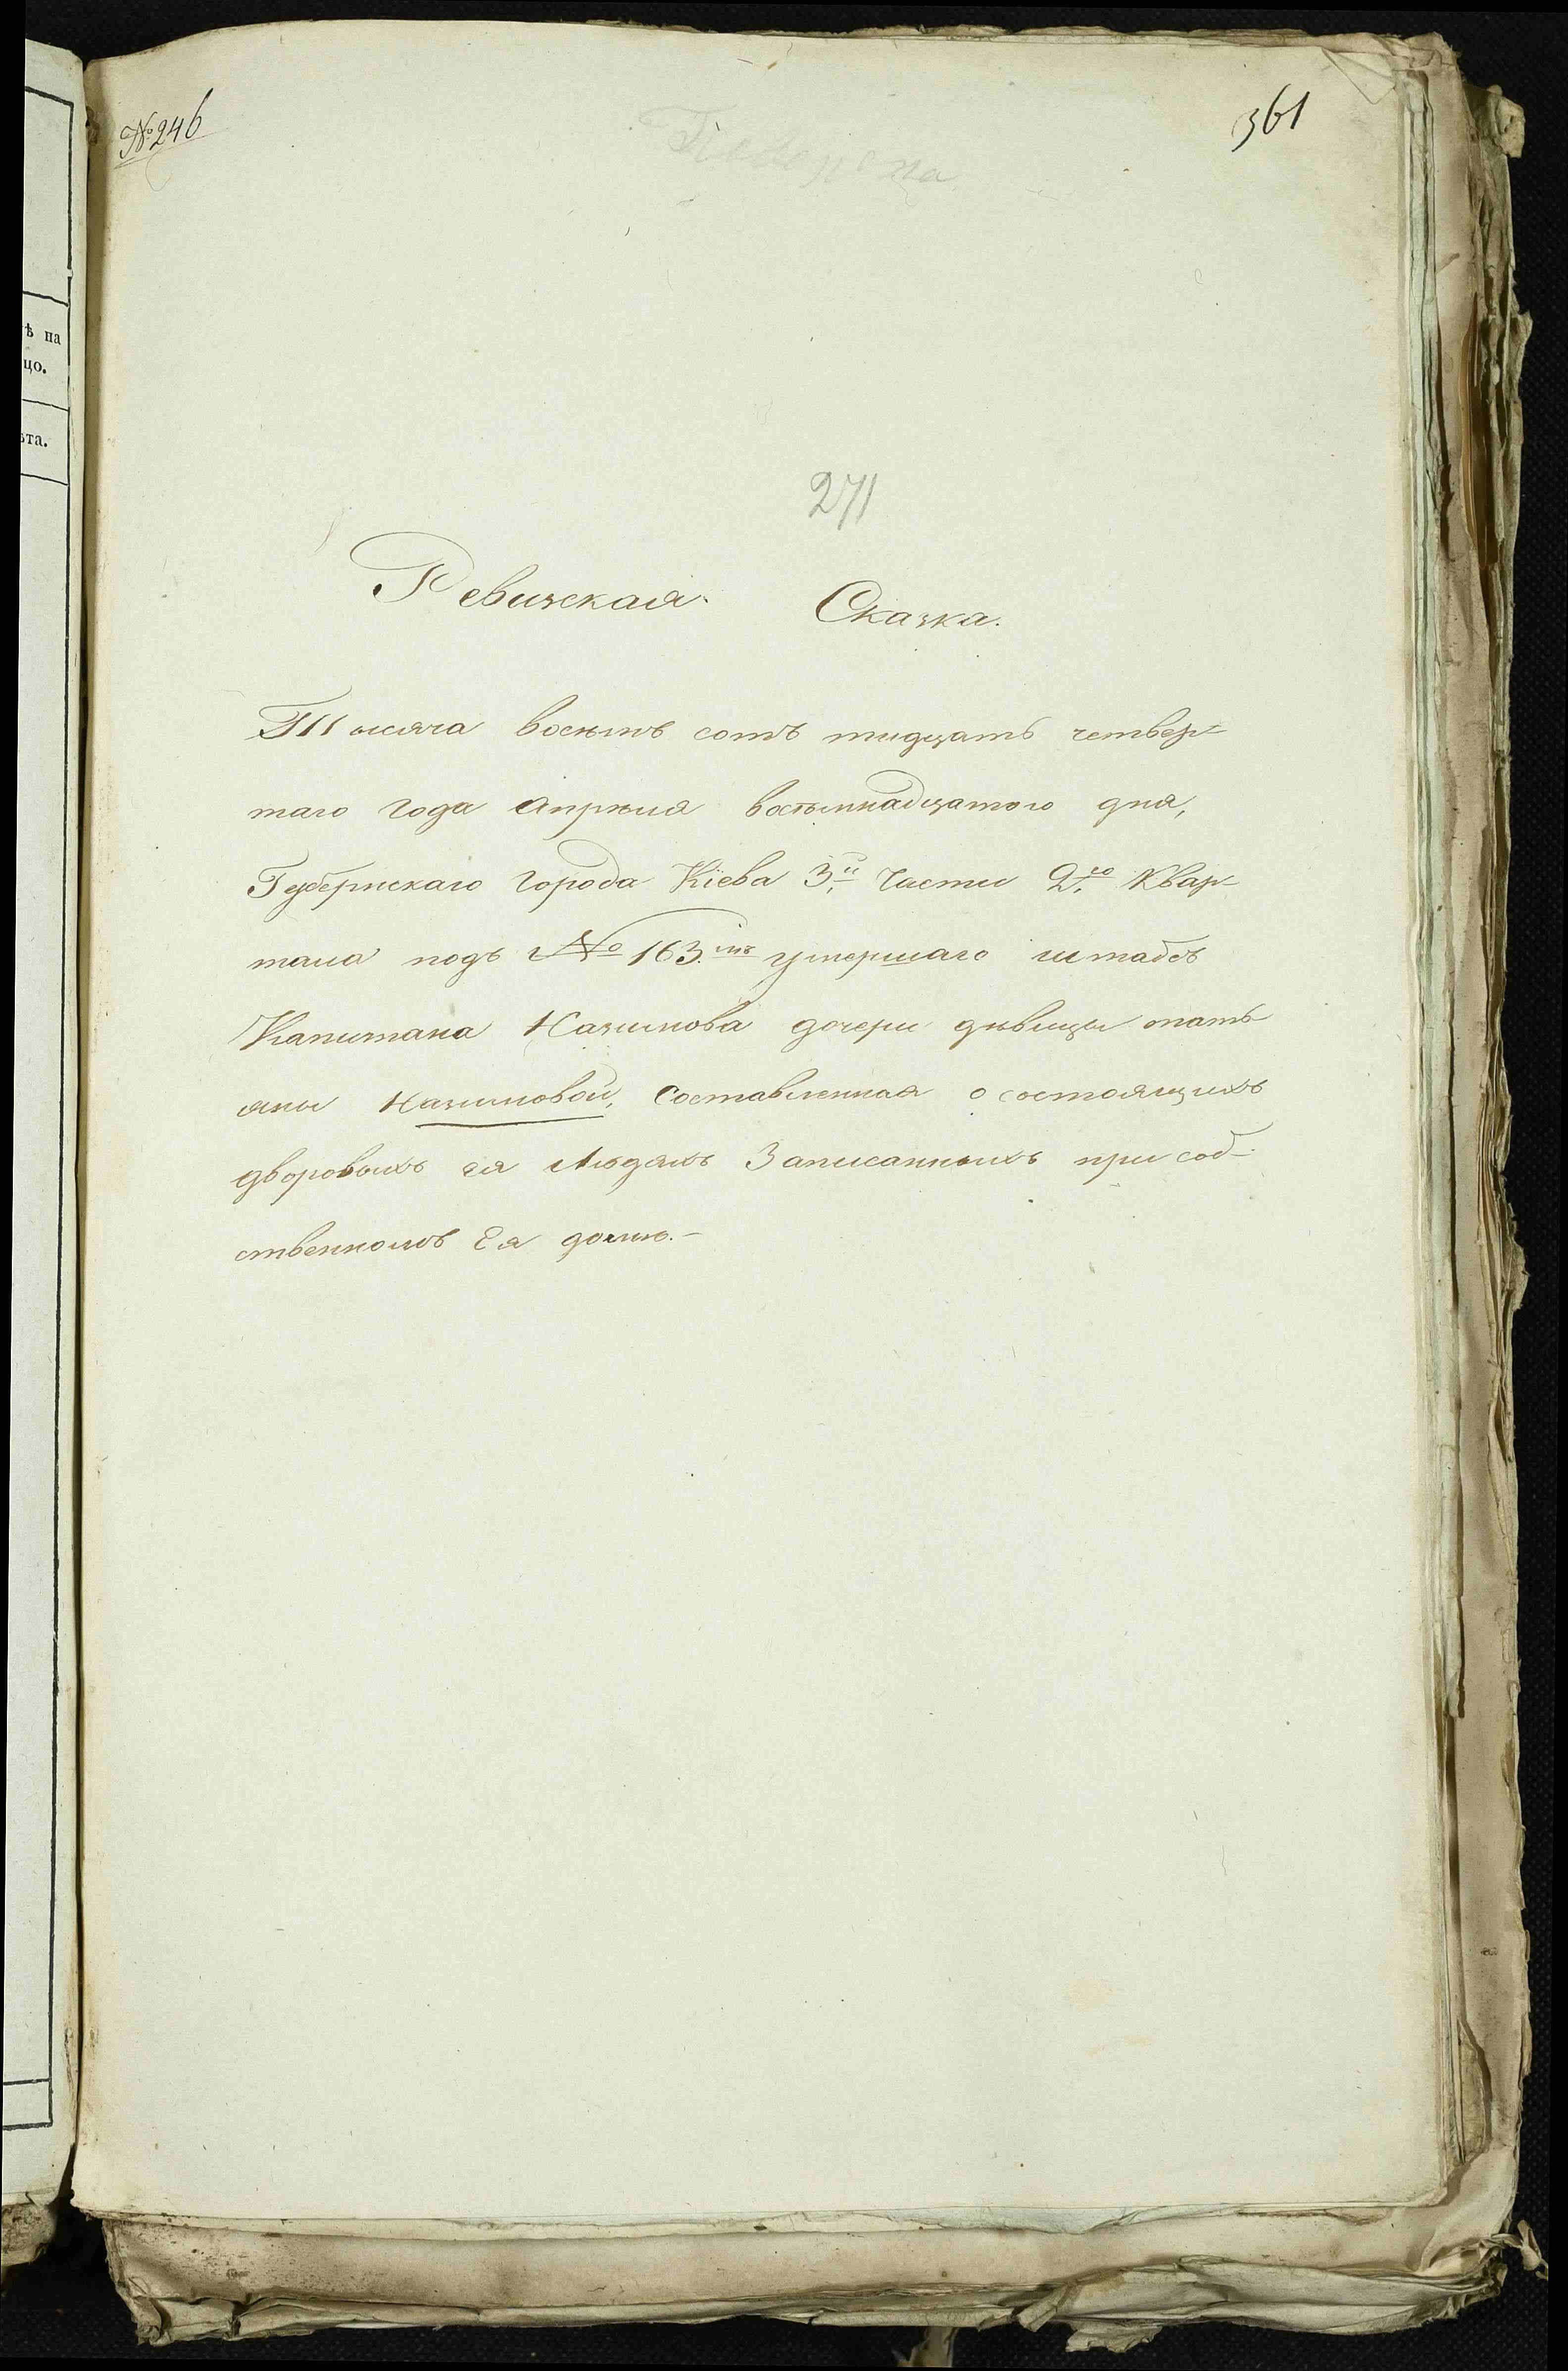 № 246
361
ѣ на
цо.
ѣта.
271
Ревизская Сказка.
Тысяча восѣмъ сотъ тидцать четвер-
таго года Апрѣля восѣмнадцатого дня,
Губернскаго города Кіева 3.й Части 2.го Квар-
тала подъ № 163.мъ умершаго штабсъ
Капитана Назимова дочери дѣвицы тать
яны Назимовой, Составленная о состоящихъ
дворовыхъ ея Людяхъ Записанныхъ при соб-
ственномъ Ея домѣ.-